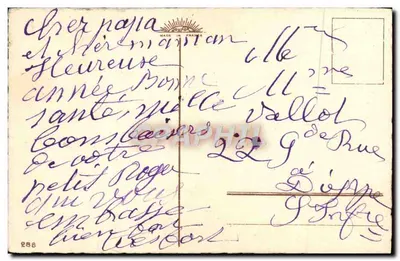 Cher papa
et Mère maman
Heureuse
année Bonne
santé mille
bons baisers
de votre
petit Roger
qui vous
embrasse
bien fort
MADE IN FRANCE
Mr
Mme
Vallot
22 Gde Rue
à Dieppe
S Infre
286